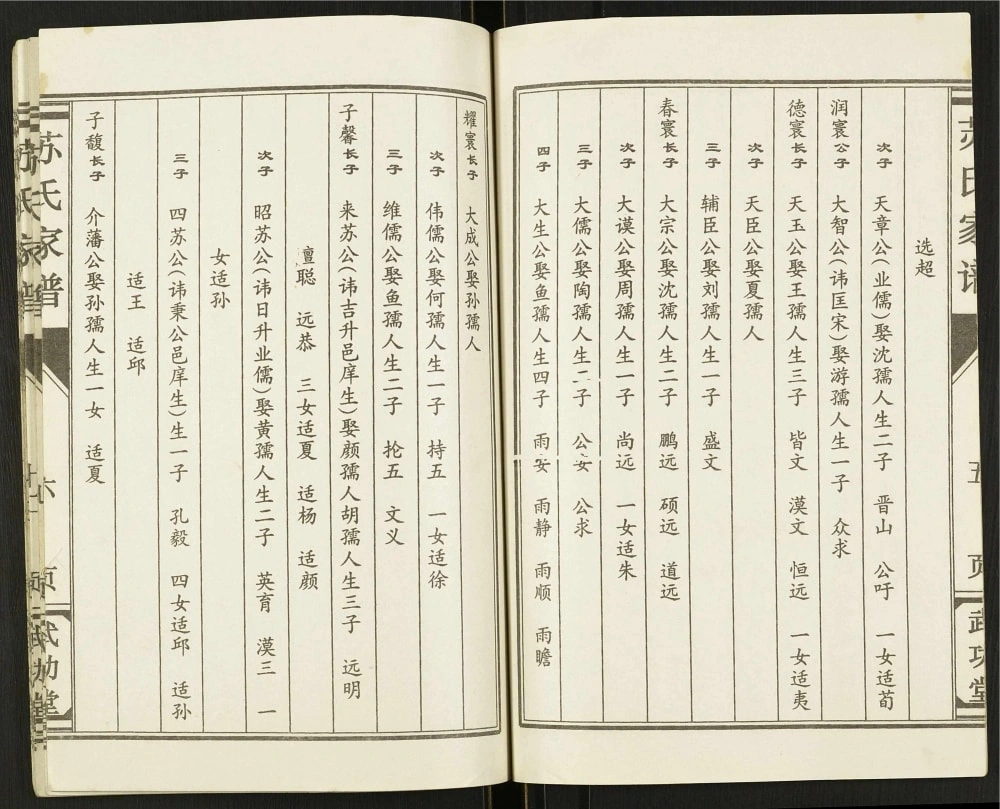 苏氏家谱
五
页
武功堂
选超
次子 天章公(业儒)娶沈孺人生二子 晋山 公吁 一女适荀
润寰公子 大智公(讳匡宋)娶游孺人生一子 众求
德寰长子 天玉公娶王孺人生三子 皆文 漠文 恒远 一女适夷
次子 天臣公娶夏孺人
三子 辅臣公娶刘孺人生一子 盛文
春寰长子 大宗公娶沈孺人生二子 鹏远 硕远 道远
次子 大谟公娶周孺人生一子 尚远 一女适朱
三子 大儒公娶陶孺人生二子 公安 公求
四子 大生公娶鱼孺人生四子 雨安 雨静 雨顺 雨瞻
耀寰长子 大成公娶孙孺人
次子 伟儒公娶何孺人生一子 持五 一女适徐
三子 维儒公娶鱼孺人生二子 抡五 文义
子馨长子 来苏公(讳吉升邑庠生)娶颜孺人胡孺人生三子 远明
亶聪 远恭 三女适夏 适杨 适颜
次子 昭苏公(讳日升业儒)娶黄孺人生二子 英育 漠三 一
女适孙
三子 四苏公(讳秉公邑庠生)生一子 孔毅 四女适邱 适孙
适王 适邱
子馥长子 介藩公娶孙孺人生一女 适夏
苏氏家谱
六
页
武功堂